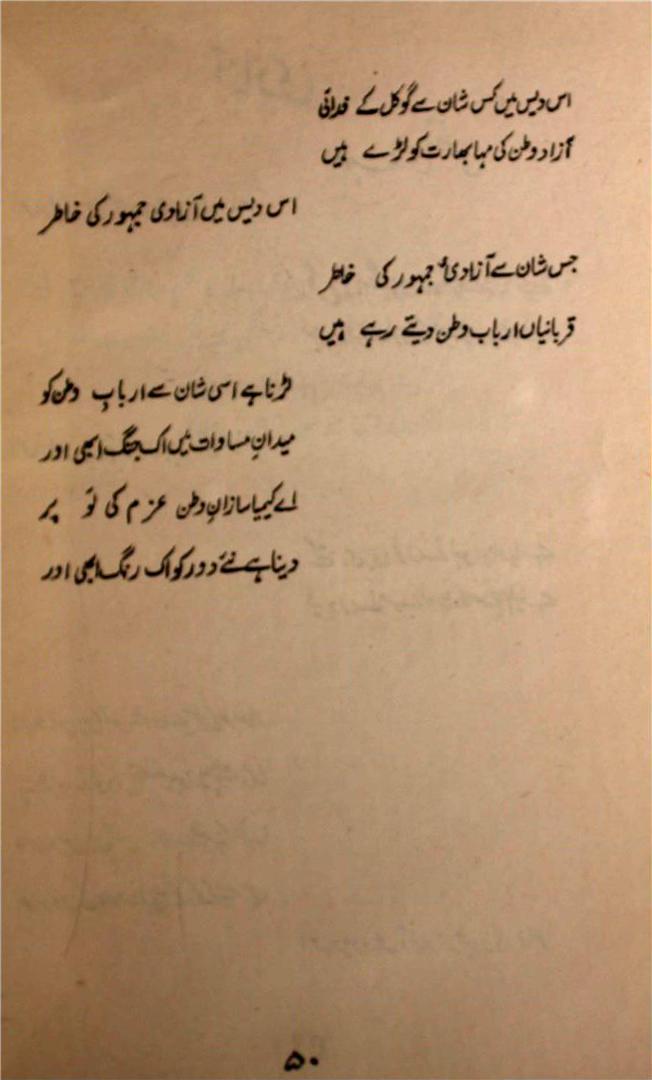 اس دیس میں کس شان سے گوکل کے فدائی
آزاد وطن کی مہابھارت کو لڑے ہیں
اس دیس میں آزادی جمہور کی خاطر
جس شان سے آزادیٔ جمہور کی خاطر
قربانیاں ارباب وطن دیتے رہے ہیں
لڑنا ہے اسی شان سے اربابِ وطن کو
میدانِ مساوات میں اک جنگ ابھی اور
اے کیمیا سازانِ وطن عزم کی لَو پر
دینا ہے نئے دور کو اک رنگ ابھی اور
۵۰